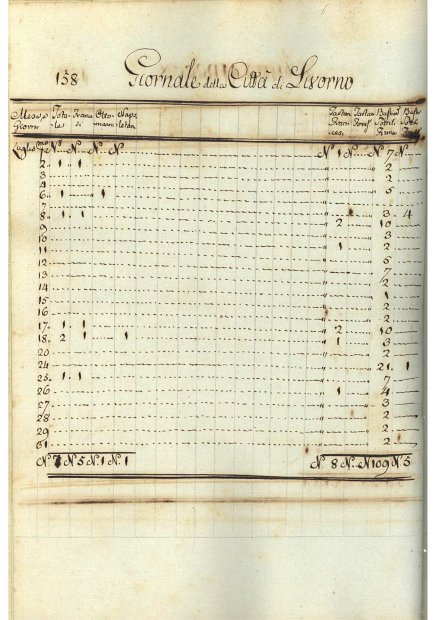 158 Giornale della Città di Livorno
Mese, e Giorni Tota-le Franceſi Otto-mani Napo-letan Tartane Franceſi Tartane Pontif. Bastim. Pontif. Bast. Pontif.
Luglio pmo N. N. N. N. N. 1 N. N. 7 N.
2 1 1 " 2
3 " 2
4 " 5
6 1 1 "
7 " 3 4
8 1 1 2 " 10
9 " 3
10 1 " 2
11 " 5
12 " 7
13 " 2
14 " 1
15 " 2
16 " 2
17 1 1 2 " 10
18 2 1 1 1 " 3
20 " 2
24 " 21 1
25 1 1 " 7
26 1 " 4
27 " 3
28 " 2
29 " 2
31 " 2
N. 7 N. 5 N. 1 N. 1 N. 8 N. N. 109 N. 5